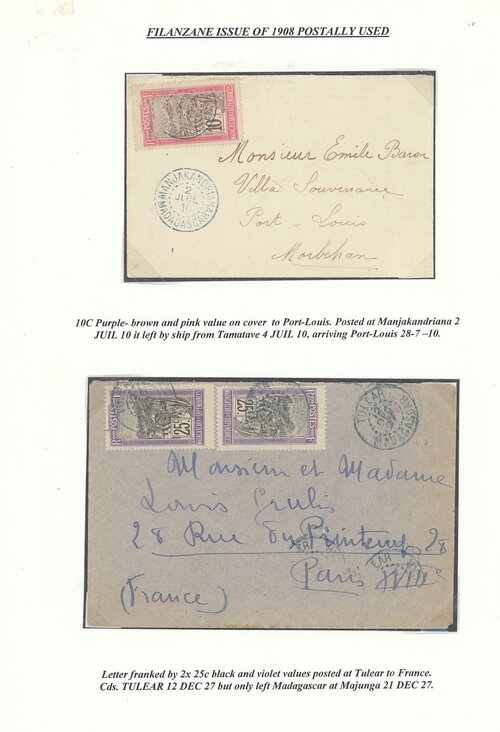 FILANZANE ISSUE OF 1908 POSTALLY USED
POSTES
10
MANJAKANDRIANA
2
JUIL
10
MADAGASCAR
Monsieur Emile Baron
Villa Souvenance
Port-Louis
Morbihan
10C Purple- brown and pink value on cover to Port-Louis. Posted at Manjakandriana 2
JUIL 10 it left by ship from Tamatave 4 JUIL 10, arriving Port-Louis 28-7 –10.
POSTES
25
POSTES
25
TULEAR
12
DEC
MADAGASCAR
Monsieur et Madame
Louis
28 Rue du Printemps 28
Paris XVIIe
(France)
Letter franked by 2x 25c black and violet values posted at Tulear to France.
Cds. TULEAR 12 DEC 27 but only left Madagascar at Majunga 21 DEC 27.